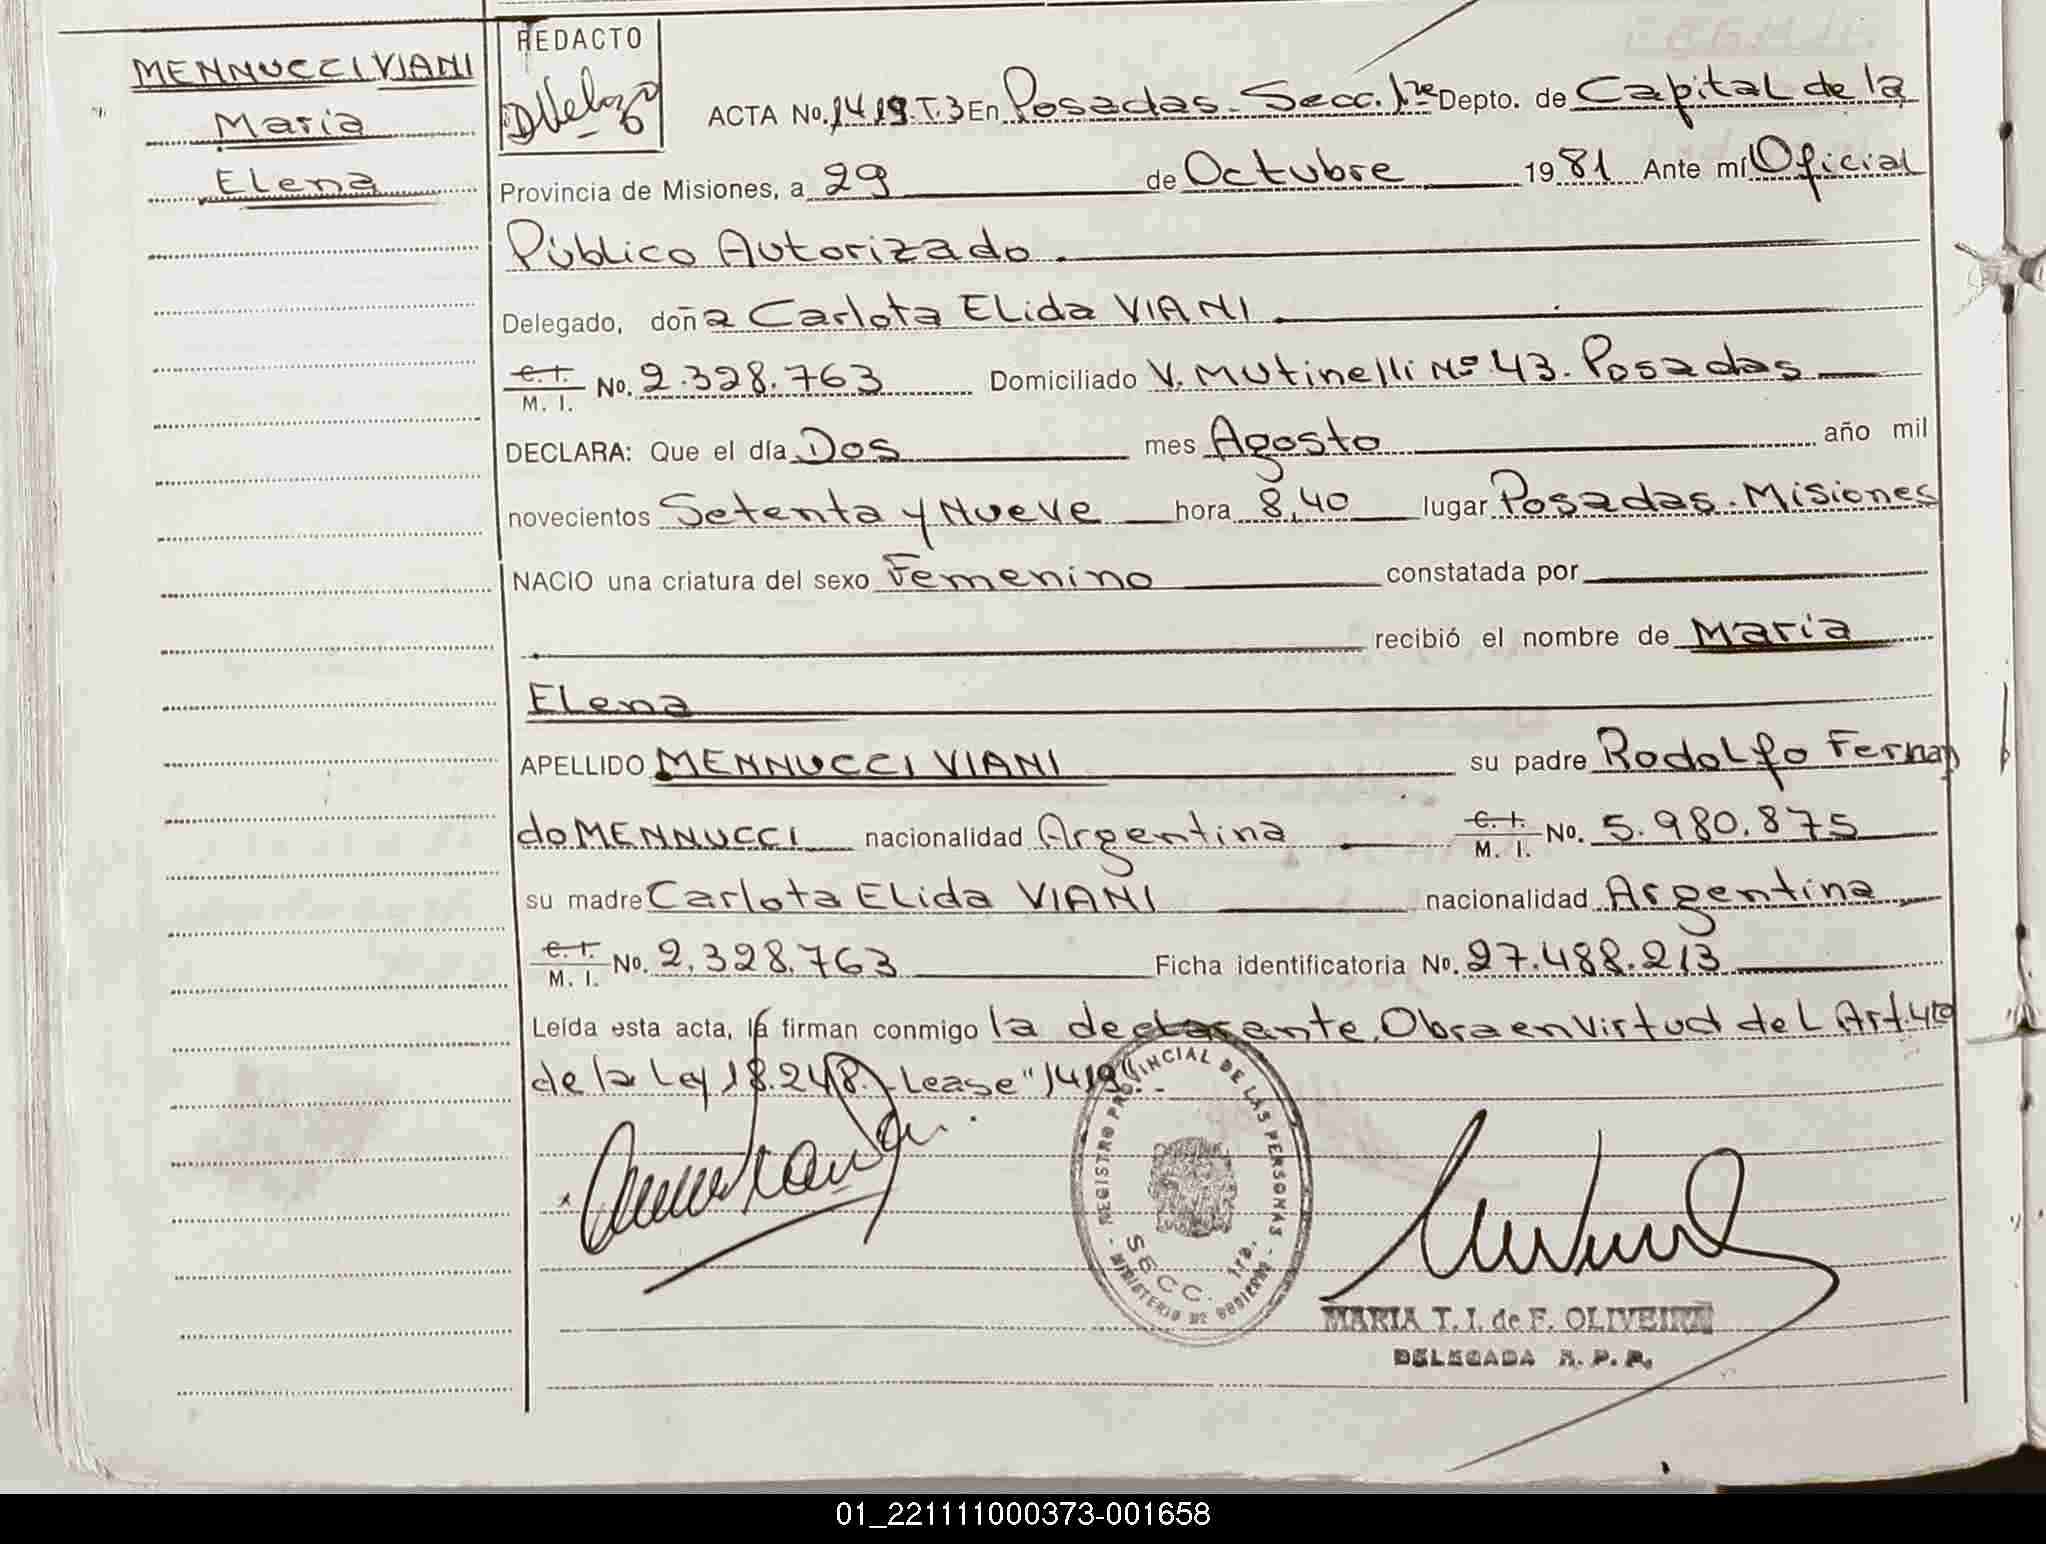 MENNUCCI VIANI
Maria
Elena
REDACTO
ACTA No. 1419. T. 3 En Posadas. Secc. 1re Depto. de Capital de la
Provincia de Misiones, a 29 de Octubre 1981 Ante mí Oficial
Público Autorizado.
Delegado, doña Carlota Elida VIANI
C. I. No. 2.328.763 Domiciliado V. Mutinelli Nº 43. Posadas
M. I.
DECLARA: Que el día Dos mes Agosto año mil
novecientos Setenta y Nueve hora 8,40 lugar Posadas. Misiones
NACIO una criatura del sexo Femenino constatada por
recibió el nombre de Maria
Elena
APELLIDO MENNUCCI VIANI su padre Rodolfo Fernan
do MENNUCCI nacionalidad Argentina C. I. No. 5.980.875
M. I.
su madre Carlota Elida VIANI nacionalidad Argentina
C. I. No. 2.328.763 Ficha identificatoria No. 27.488.213
M. I.
Leída esta acta, la firman conmigo la declarante. Obra en virtud del Art. 4to
de la Ley 18.248. Lease "1419".
REGISTRO PROVINCIAL DE LAS PERSONAS
SECC. 1ra.
MINISTERIO DE GOBIERNO
MARIA T. I. de F. OLIVEIRA
DELEGADA R. P. P.
01_221111000373-001658